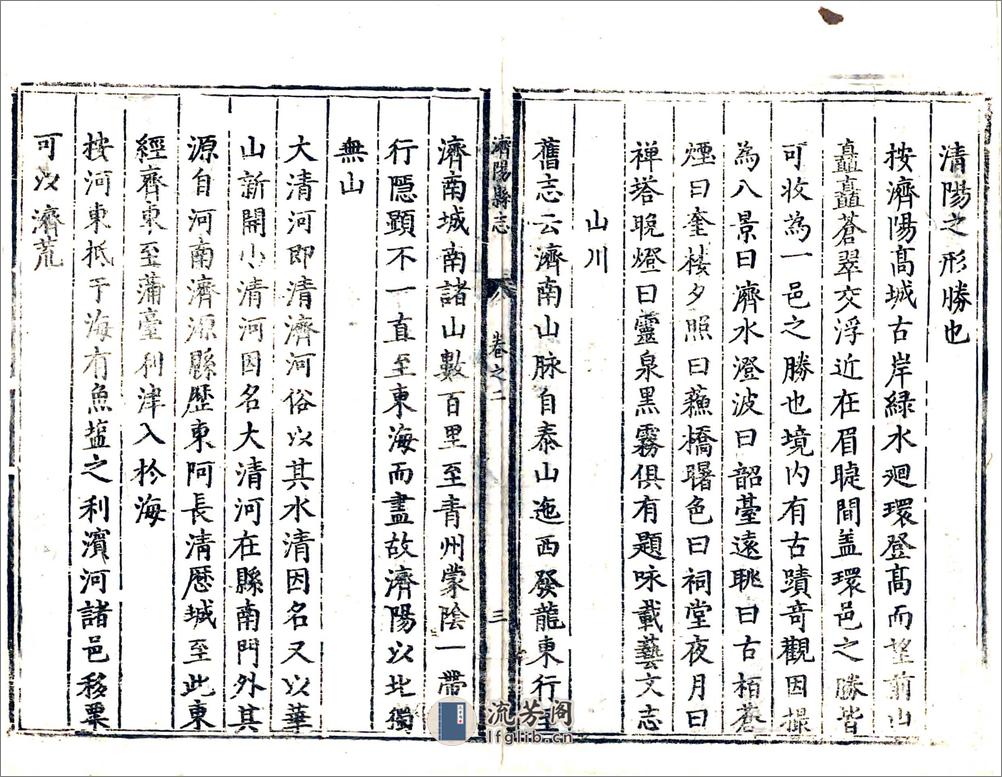 清陽之形勝也
按濟陽高城古岸綠水廻環登高而望前山
矗矗蒼翠交浮近在眉睫間盖環邑之勝皆
可收為一邑之勝也境内有古蹟竒觀因撮
為八景曰濟水澄波曰韶臺遠眺曰古栢蒼
煙曰奎楼夕照曰蘓橋曙色曰祠堂夜月曰
禅塔晚燈曰靈泉黑霧俱有題咏載藝文志
山川
舊志云濟南山脉自泰山迤西發龍東行至
濟陽縣志
卷之二
三
濟南城南諸山數百里至青州蒙陰一帶
行隱顕不一直至東海而盡故濟陽以北獨
無山
大清河即清濟河俗以其水清因名又以華
山新開小清河因名大清河在縣南門外其
源自河南濟源縣歷東阿長清歷城至此東
經齊東至蒲臺利津入於海
按河東抵于海有魚塩之利濱河諸邑移粟
可以濟荒
流芳阁
lfglib.cn